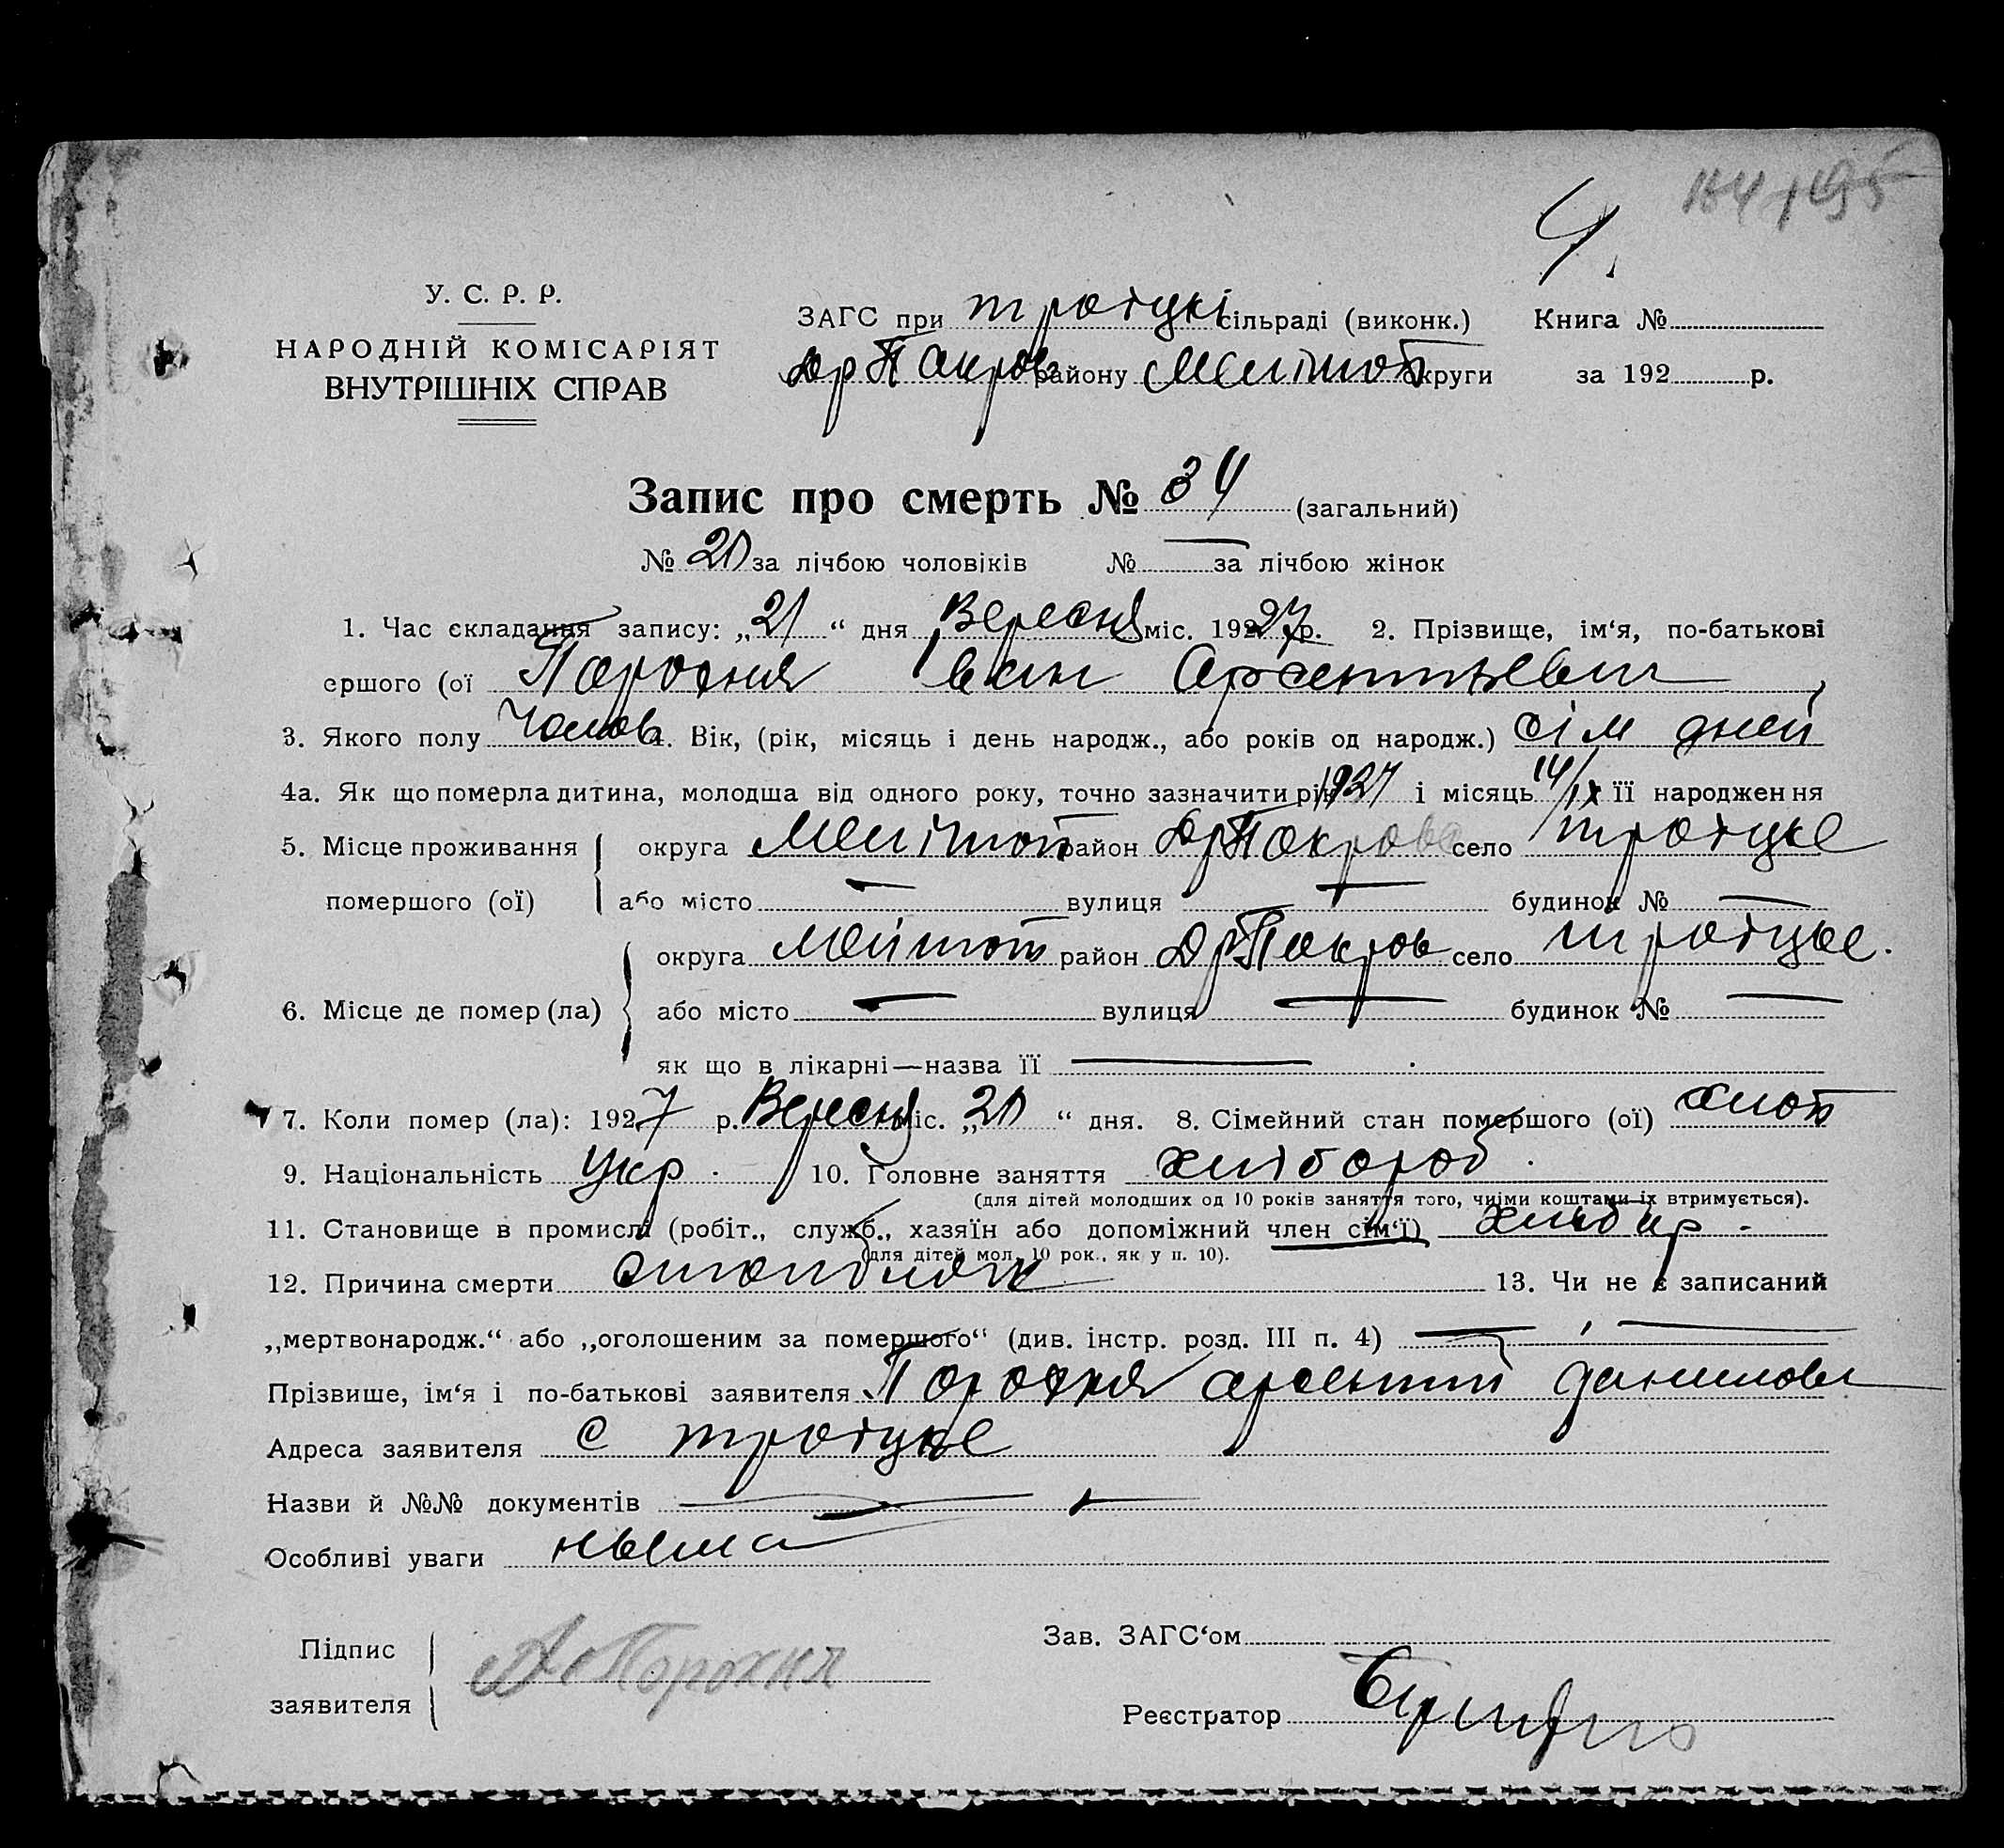 4.
У. С. Р. Р.
НАРОДНІЙ КОМІСАРІЯТ
ВНУТРІШНІХ СПРАВ
ЗАГС при троіцкі сільраді (виконк.) Книга №
Др Покров району Меліто́п округи за 192 р.
Запис про смерть № 34 (загальний)
№ 20 за лічбою чоловіків № — за лічбою жінок
1. Час складання запису: „21“ дня Вересня міс. 1927 р. 2. Прізвище, ім‘я, по-батькові
ершого (ої Порохня Іван Арсентьевич
3. Якого полу Чолов 4. Вік, (рік, місяць і день народж., або років од народж.) сім дней
4а. Як що померла дитина, молодша від одного року, точно зазначити рік 1927 і місяць 14/IX її народження
5. Місце проживання помершого (ої) округа Меліто́п район Др Покров село троіцке
або місто — вулиця — будинок № —
6. Місце де помер (ла) округа Мелітоп район Др Покров село троіцке.
або місто — вулиця — будинок № —
як що в лікарні—назва її —
7. Коли помер (ла): 1927 р. Вересня міс. „20“ дня. 8. Сімейний стан помершого (ої) холот
9. Національність Укр. 10. Головне заняття хлібороб.
(для дітей молодших од 10 років заняття того, чиїми коштами їх втримується).
11. Становище в промислі (робіт., служб., хазяїн або допоміжний член сім‘ї)
(для дітей мол. 10 рок., як у п. 10).
12. Причина смерти 13. Чи не є записаний
„мертвонародж.“ або „оголошеним за помершого“ (див. інстр. розд. III п. 4) —
Прізвище, ім‘я і по-батькові заявителя Порохня арсентий данилови
Адреса заявителя с троіцке
Назви й №№ документів —
Особливі уваги
Підпис заявителя А Порохня
Зав. ЗАГС‘ом
Реєстратор